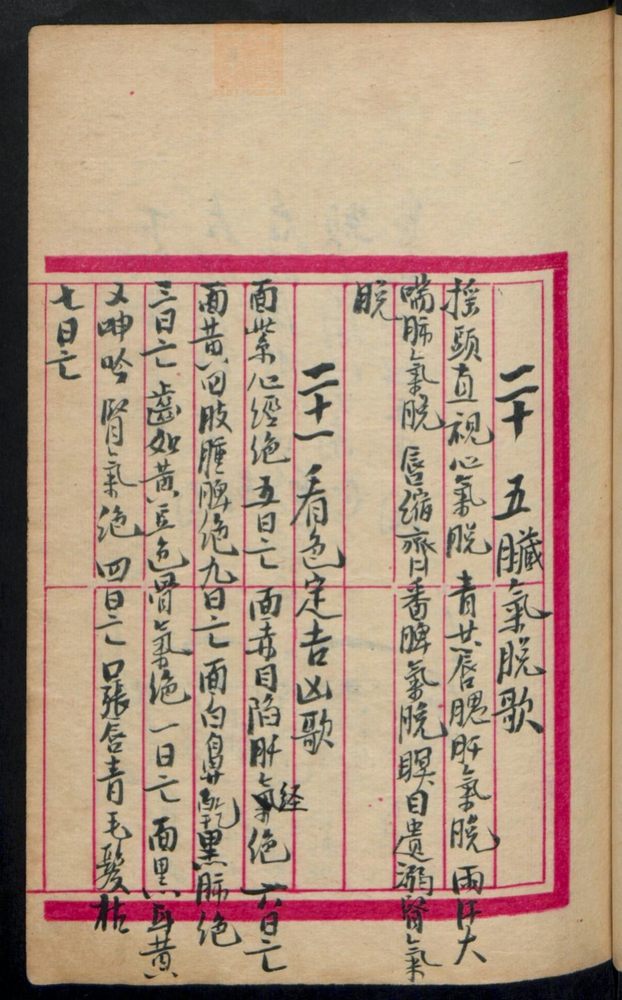 二十 五臟氣脱歌
摇頭直視心氣脱 青共唇腮肝氣脱 兩汗大
喘肺氣脱 唇缩齊番脾氣脱 瞑目遺溺腎氣
脱
二十一 看色定吉凶歌
面紫心經绝五日亡 面赤目陷肝氣经绝 六日亡
面黄四肢腫脾绝九日亡 面白鼻乾黑肺绝
三日亡 齒如黄豆色骨氣绝 一日亡 面黑耳黄
又呻吟腎氣绝 四日亡 口張唇青毛髮枯
七日亡